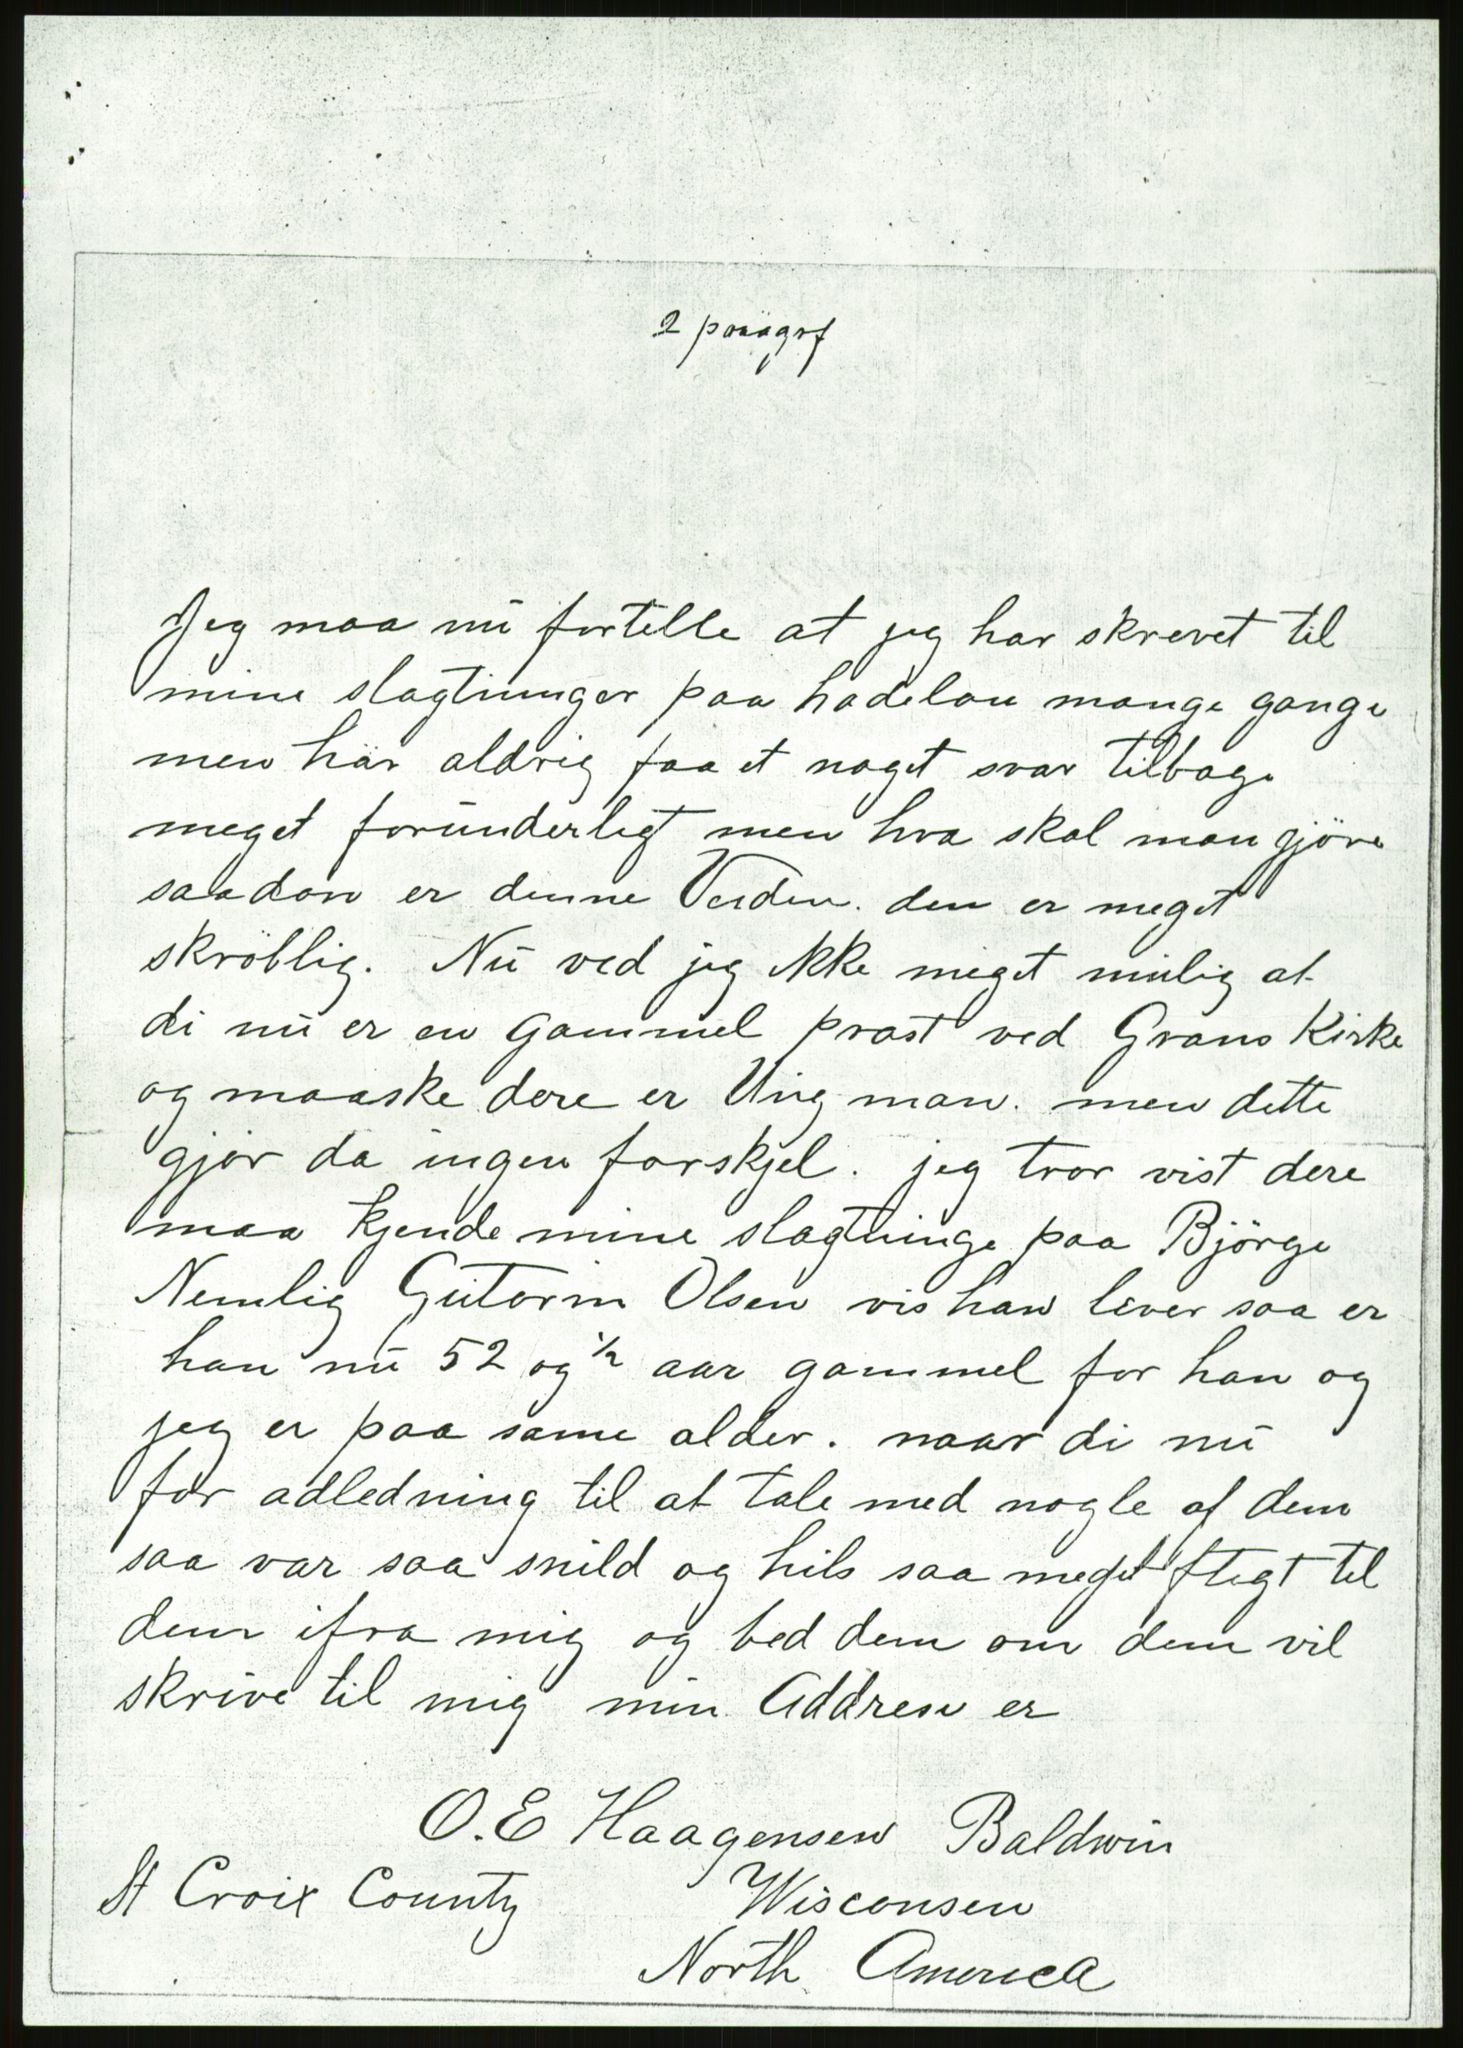 2 paragrf
Jeg maa nu fortelle at jeg har skrevet til
mine slagtninger paa hadelan mange gange
men har aldrig faaet noget svar tilbage
meget forunderligt men hva skal man gjöre
saadan er denne Verden. den er meget
skröblig. Nu ved jeg ikke meget mulig at
di nu er en gammel prast ved Grans Kirke
og maaske dere er Ung man. men dette
gjör da ingen forskjel. jeg tror vist dere
maa kjende mine slagtninge paa Björge
Nemlig Gutorm Olsen vis han lever saa er
han nu 52 og 1/2 aar gammel for han og
jeg er paa same alder. naar di nu
for adledning til at tale med nogle af dem
saa var saa snild og hils saa meget til
dem ifra mig og bed dem om dem vil
skrive til mig min Addrese er
O. E Haagensen Baldwin
St Croix County Wisconsen
North America